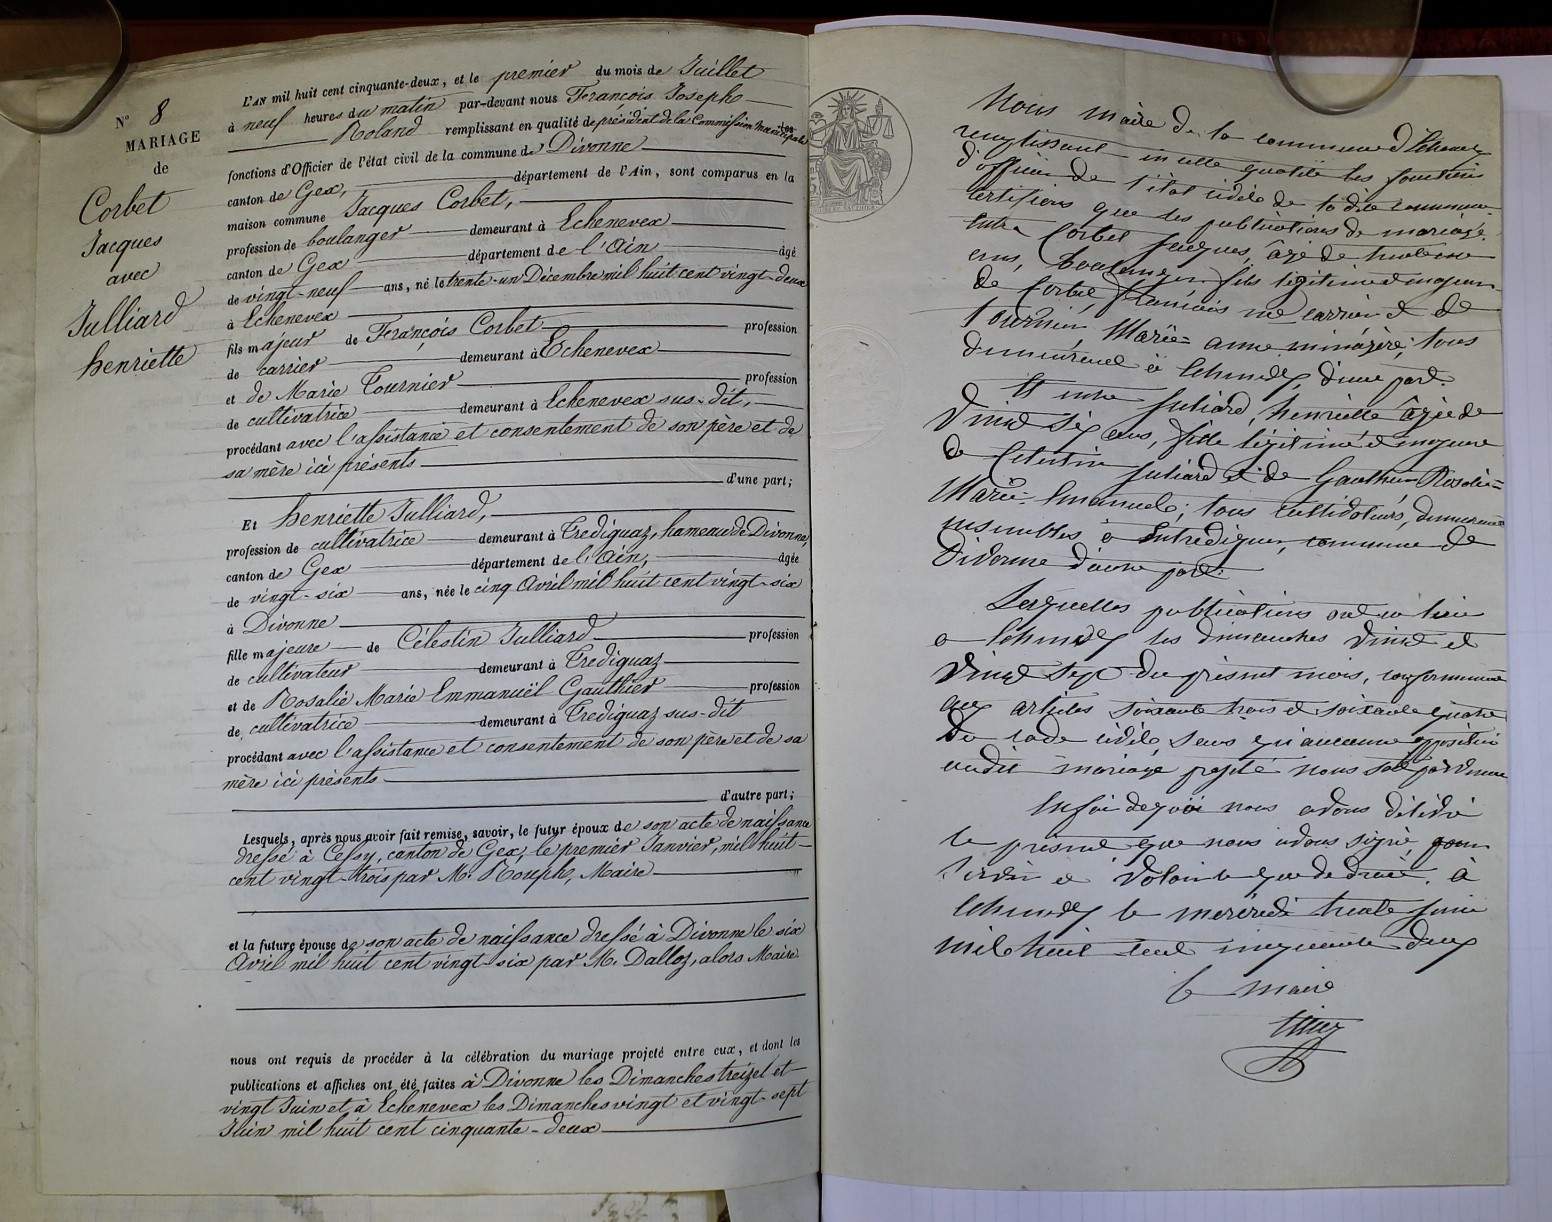 N° 8
MARIAGE
de
Corbet
Jacques
avec
Julliard
henriette
L'AN mil huit cent cinquante-deux, et le premier du mois de Juillet
à neuf heures du matin par-devant nous François Joseph
Roland remplissant en qualité de président de la Commission Municipale les
fonctions d'Officier de l'état civil de la commune de Divonne
canton de Gex, département de l'Ain, sont comparus en la
maison commune Jacques Corbet,
profession de boulanger demeurant à Echenevex
canton de Gex département de l'Ain âgé
de vingt-neuf ans, né le trente-un Décembre mil huit cent vingt-deux
à Echenevex
fils majeur de François Corbet profession
de carrier demeurant à Echenevex
et de Marie Tournier profession
de cultivatrice demeurant à Echenevex sus-dit,
procédant avec l'assistance et consentement de son père et de
sa mère ici présents
d'une part;
Et henriette Julliard,
profession de cultivatrice demeurant à Trediguaz, hameau de Divonne,
canton de Gex département de l'Ain, âgée
de vingt-six ans, née le cinq Avril mil huit cent vingt-six
à Divonne
fille majeure de Célestin Julliard profession
de cultivateur demeurant à Trediguaz
et de Rosalie Marie Emmanuël Gauthier profession
de cultivatrice demeurant à Trediguaz sus-dit
procédant avec l'assistance et consentement de son père et de sa
mère ici présents
d'autre part;
Lesquels, après nous avoir fait remise, savoir, le futur époux de son acte de naissance
dressé à Cessy, canton de Gex, le premier Janvier, mil huit-
cent vingt-trois par M. Rouph, Maire
et la future épouse de son acte de naissance dressé à Divonne le six
Avril mil huit cent vingt-six par M. Dalloz, alors Maire
nous ont requis de procéder à la célébration du mariage projeté entre eux, et dont les
publications et affiches ont été faites à Divonne les Dimanches treize et
vingt Juin et à Echenevex les Dimanches vingt et vingt-sept
Juin mil huit cent cinquante-deux
Nous maire de la commune d'Echenevex
remplissant en cette qualité les fonctions
d'officier de l'état civile de la dite commune
certifions que les publications de mariage
entre Corbet Jacques, âgé de trente
ans, boulanger fils légitime et majeur
de Corbet, François me carrier et de
Tournier, Marie anne ménagère, tous
demeurent à Echenevex, d'une part.
Et entre Juliard, henriette âgée de
Vint Six ans, fille légitime et majeure
de Celestin Juliard et de Gauthier Rosalie
Marie Emanuele; tous cultivateurs, demeurant
ensembles à commune de
Divonne d'autre part.
Lesquelles publications ont eu lieu
a Echenevex les dimenches Vint et
Vint Sept du présent mois, conformément
aux articles soixante trois et soixante quatre
du code civile, sans qu'aucune opposition
audit mariage projeté nous soit parvenue
En foi de quoi nous avons délivré
le présent que nous avons signé pour
servir et valoir ce que de droit. à
Echenevex le mercredi trente juin
mil huit cent cinquante deux
le maire